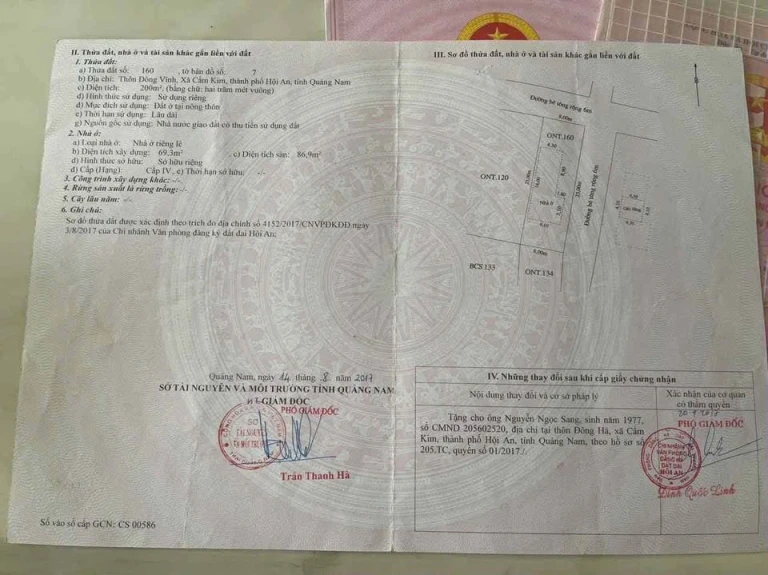 II. Thửa đất, nhà ở và tài sản khác gắn liền với đất
1. Thửa đất:
a) Thửa đất số: 160 , tờ bản đồ số: 7
b) Địa chỉ: Thôn Đông Vĩnh, Xã Cẩm Kim, thành phố Hội An, tỉnh Quảng Nam
c) Diện tích: 200m², (bằng chữ: hai trăm mét vuông)
d) Hình thức sử dụng: Sử dụng riêng
đ) Mục đích sử dụng: Đất ở tại nông thôn
e) Thời hạn sử dụng: Lâu dài
g) Nguồn gốc sử dụng: Nhà nước giao đất có thu tiền sử dụng đất
2. Nhà ở:
a) Loại nhà ở: Nhà ở riêng lẻ
b) Diện tích xây dựng: 69,3m² , c) Diện tích sàn: 86,9m²
d) Hình thức sở hữu: Sở hữu riêng
đ) Cấp (Hạng): Cấp IV , e) Thời hạn sở hữu: -/-
3. Công trình xây dựng khác: -/-
4. Rừng sản xuất là rừng trồng: -/-
5. Cây lâu năm: -/-
6. Ghi chú:
Sơ đồ thửa đất được xác định theo trích đo địa chính số 4152/2017/CNVPĐKĐĐ ngày
3/8/2017 của Chi nhánh Văn phòng đăng ký đất đai Hội An.
Quảng Nam, ngày 14 tháng 8 năm 2017
SỞ TÀI NGUYÊN VÀ MÔI TRƯỜNG TỈNH QUẢNG NAM
KT.GIÁM ĐỐC
PHÓ GIÁM ĐỐC
SỞ
TÀI NGUYÊN
VÀ MÔI TRƯỜNG
Trần Thanh Hà
Số vào sổ cấp GCN: CS 00586
III. Sơ đồ thửa đất, nhà ở và tài sản khác gắn liền với đất
Đường bê tông rộng 6m
8,00m
ONT.160
ONT.120
25,00m
25,00m
Nhà ở
Đường bê tông rộng 6m
8,00m
BCS.133
ONT.134
IV. Những thay đổi sau khi cấp giấy chứng nhận
Nội dung thay đổi và cơ sở pháp lý
Xác nhận của cơ quan
có thẩm quyền
Tặng cho ông Nguyễn Ngọc Sang, sinh năm 1977,
số CMND. 205602520, địa chỉ tại thôn Đông Hà, xã Cẩm
Kim, thành phố Hội An, tỉnh Quảng Nam, theo hồ sơ số
205.TC, quyển số 01/2017./.
PHÓ GIÁM ĐỐC
CHI NHÁNH
VĂN PHÒNG
ĐĂNG KÝ
ĐẤT ĐAI
HỘI AN
Đinh Quốc Linh